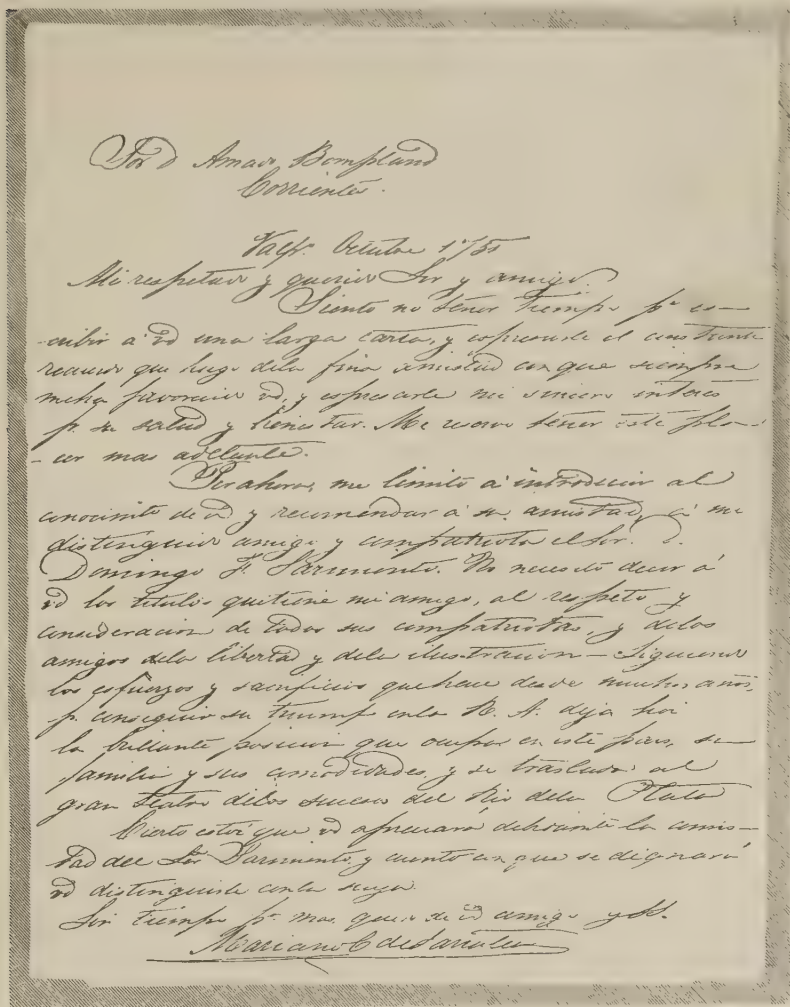 Sor d Amado Bompland
Corrientes.
Valpo. Octubre 1°/51
Mi respetado y querido Sor y amigo.
Siento no tener tiempo pa. es—
-cribir a vd una larga carta, y espresarle el constante
recuerdo que hago dela fina amistad con que siempre
meha favorecido vd, y espresarle mi sincero interes
pr. su salud y bienestar. Me reservo tener este pla-
-cer mas adelante.
Por ahora, me limito á introducir al
conocimto. de vd y recomendar á su amistad, á mi
distinguido amigo y compatriota el Sor. D.
Domingo F. Sarmiento. No necesito decir á
vd los titulos quetiene mi amigo, al respeto y
consideracion de todos sus compatriotas, y delos
amigos dela libertad y dela ilustracion — Siguiendo
los esfuerzos y sacrificios quehace desde muchos años,
pr. conseguir su triunfo enla R. A. deja hoi
la brillante posicion que ocupa en este pais, su
familia y sus comodidades, y se traslada al
gran teatro delos sucesos del Rio dela Plata
Cierto estoi que vd apreciará debidamte. la amis—
tad del Sor Sarmiento, y cuento con que se dignará
vd distinguirle conla suya.
Sin tiempo pa. mas, quedo de vd amigo y S.
Mariano E de Sarratea